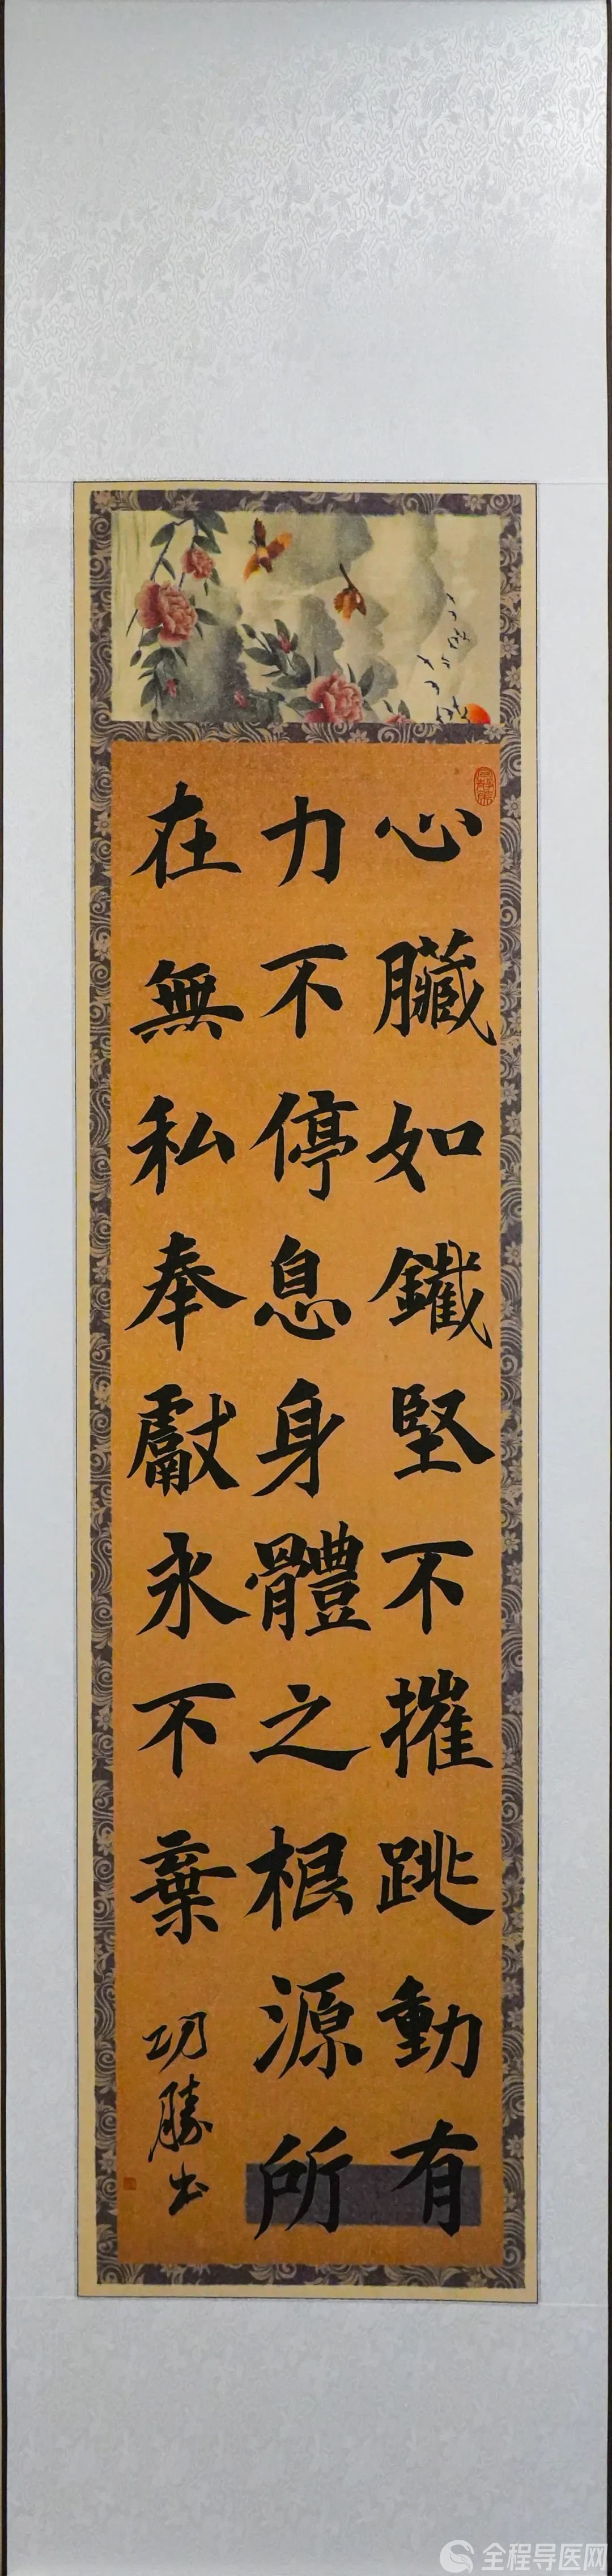 心臟如鐵堅不摧跳動有
力不停息身體之根源所
在無私奉獻永不棄
功勝书
全程导医网